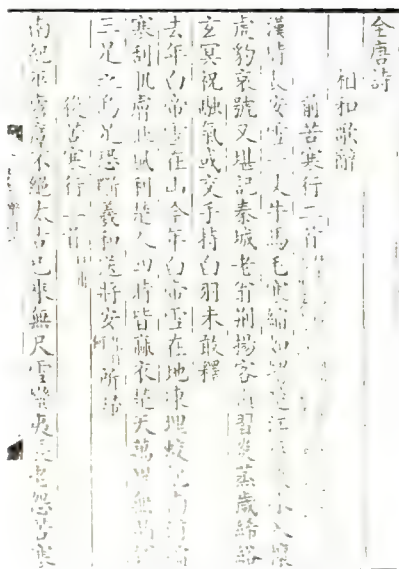 全唐詩
相和歌辭
前苦寒行二首
漢時長安雪一丈牛馬毛寒縮如楚江入懷
虎豹哀號又堪記秦城老翁荊揚客習炎蒸歲絺綌
玄冥祝融氣或交手持白羽未敢釋
去年白帝雪在山今年白帝雪在地凍埋蛟龍南浦縮
寒刮肌膚北風利楚人四時皆麻衣楚天萬里無晶
三足之烏足恐斷羲和送將安所歸
後苦寒行二首
南紀巫廬瘴不絕太古已來無尺雪蠻夷長老怨苦寒